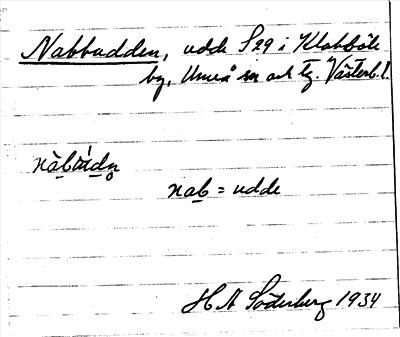 Nabbudden, udde S29 i Klabböle
by, Umeå sn och tg. Västerb.l.
nab = udde
H A Söderberg 1934